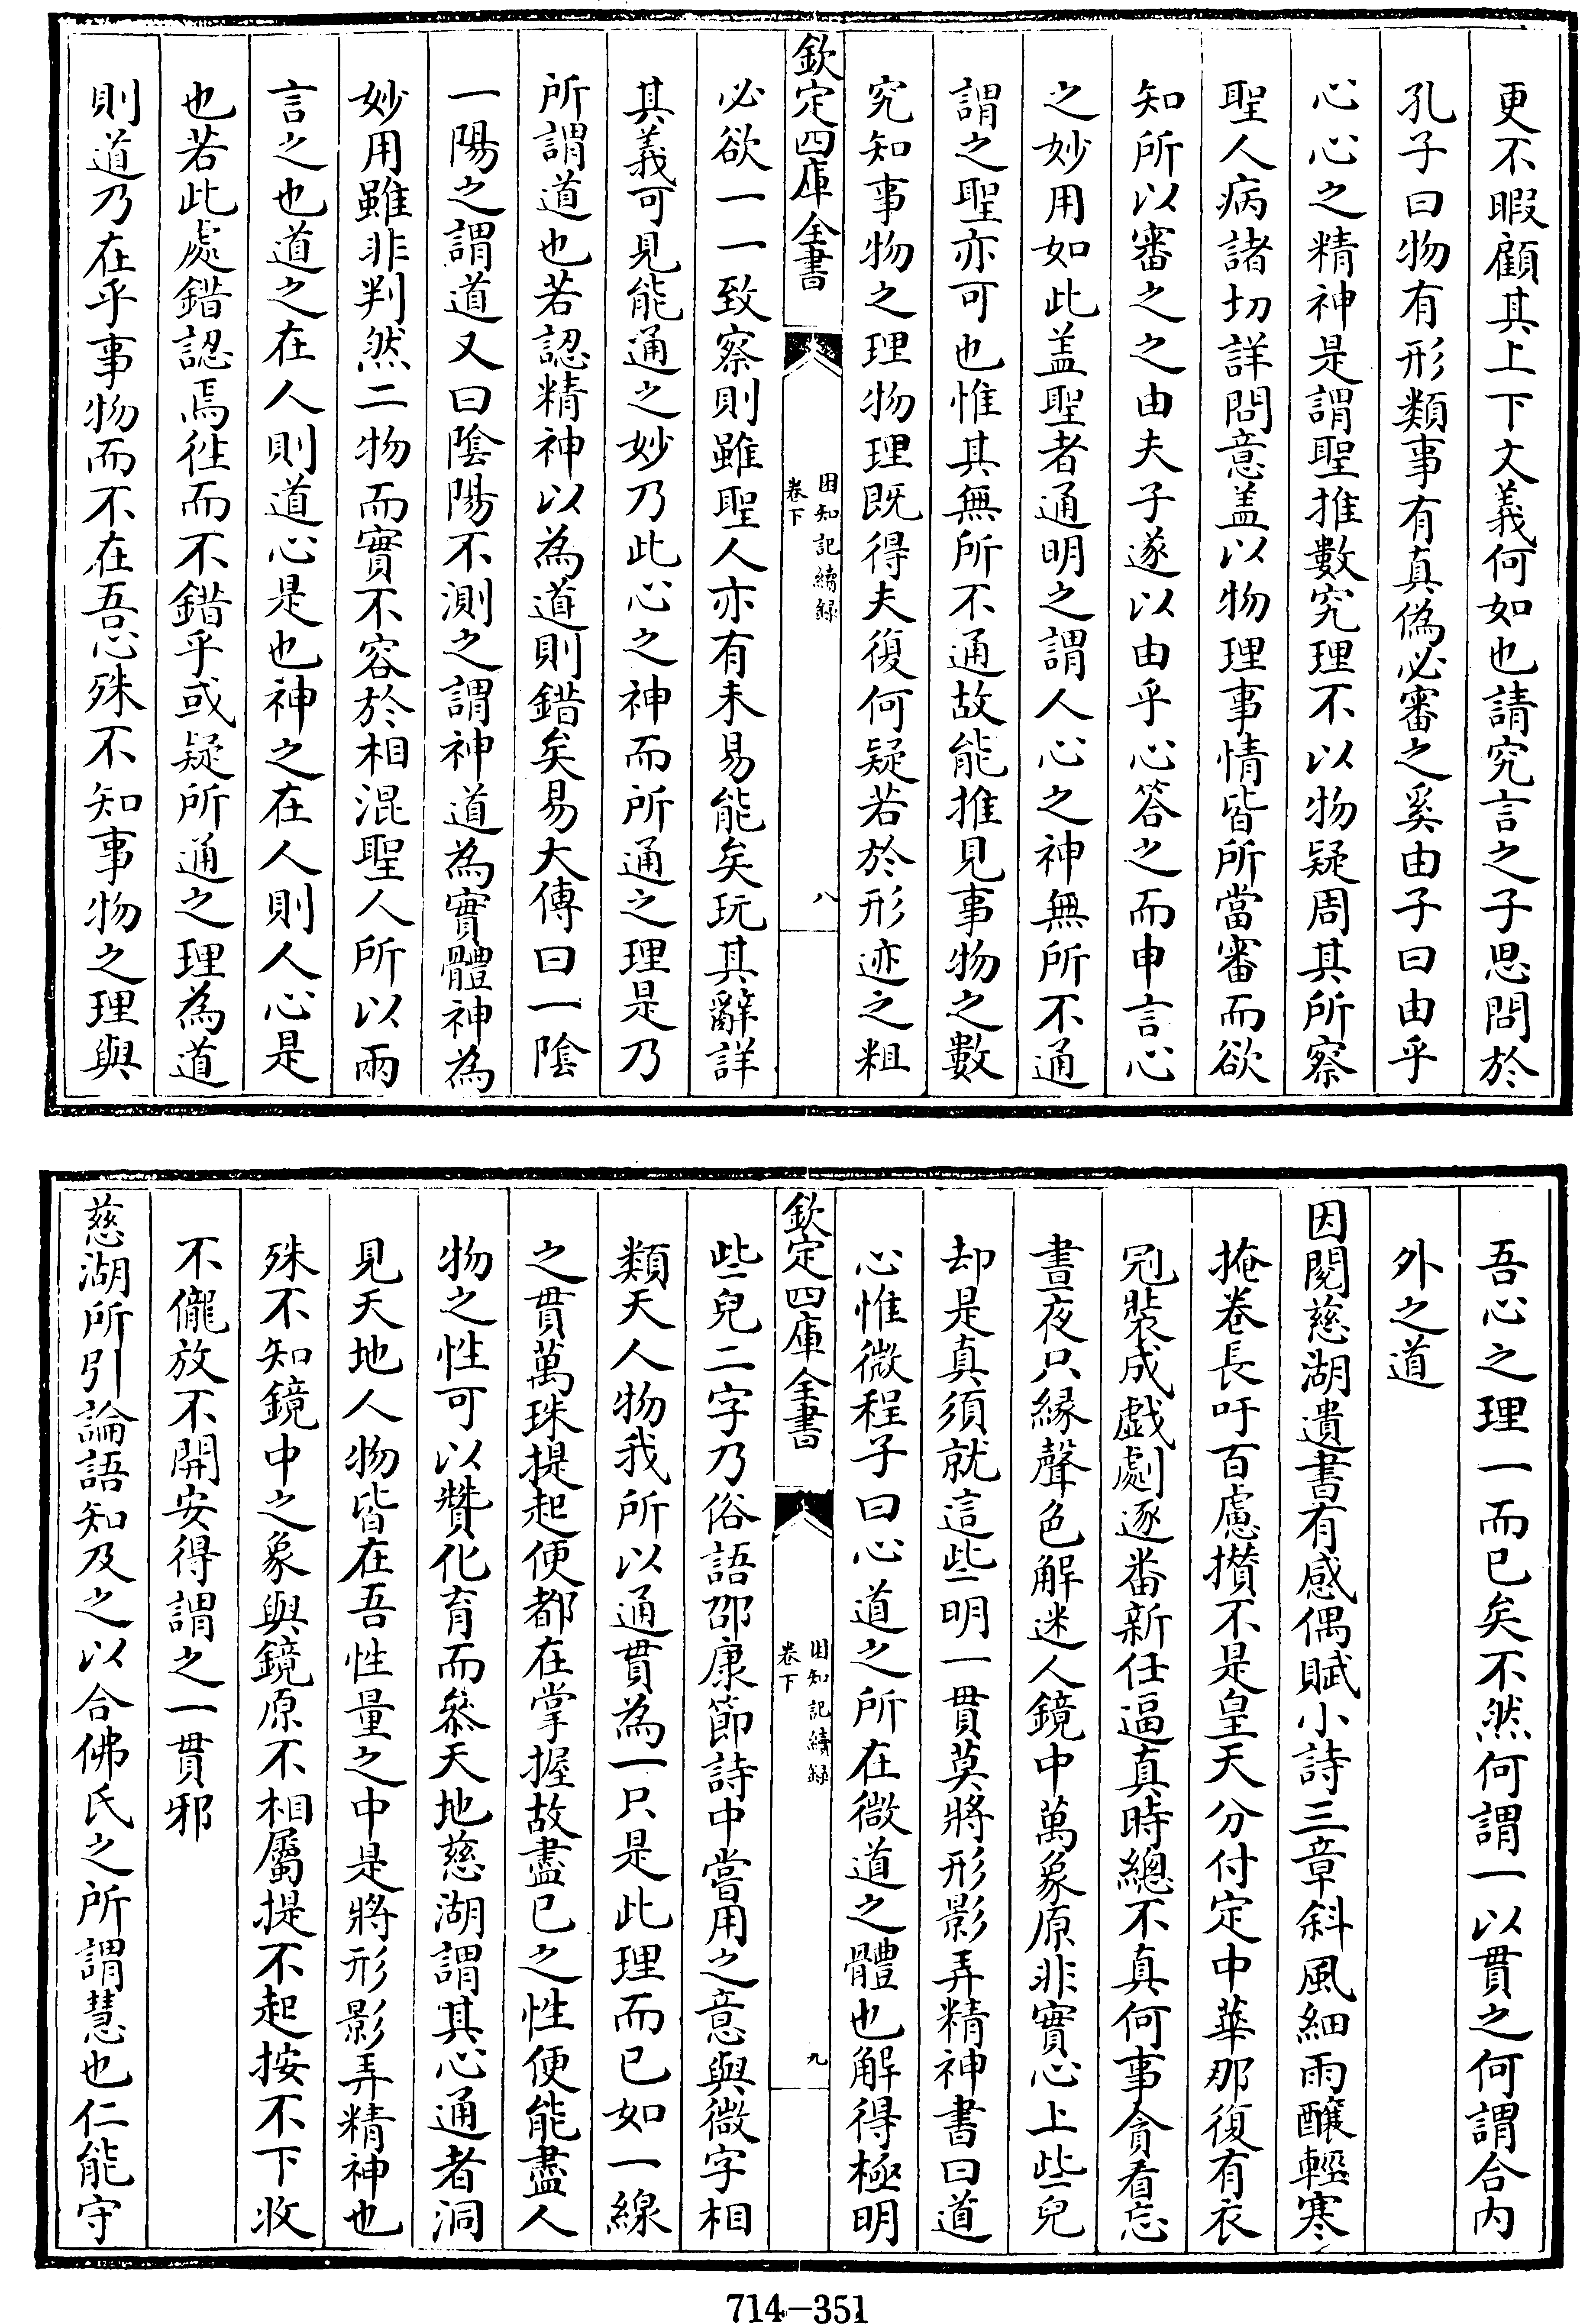 更不暇顧其上下文義何如也請究言之子思問於
孔子曰物有形類事有真偽必審之奚由子曰由乎
心心之精神是謂聖推數究理不以物疑周其所察
聖人病諸切詳問意盖以物理事情皆所當審而欲
知所以審之之由夫子遂以由乎心答之而申言心
之妙用如此盖聖者通明之謂人心之神無所不通
謂之聖亦可也惟其無所不通故能推見事物之數
究知事物之理物理既得夫復何疑若於形迹之粗
欽定四庫全書
困知記續録
卷下
八
必欲一一致察則雖聖人亦有未易能矣玩其辭詳
其義可見能通之妙乃此心之神而所通之理是乃
所謂道也若認精神以為道則錯矣易大傳曰一陰
一陽之謂道又曰陰陽不測之謂神道為實體神為
妙用雖非判然二物而實不容於相混聖人所以兩
言之也道之在人則道心是也神之在人則人心是
也若此處錯認焉徃而不錯乎或疑所通之理為道
則道乃在乎事物而不在吾心殊不知事物之理與
吾心之理一而已矣不然何謂一以貫之何謂合内
外之道
因閱慈湖遺書有感偶賦小詩三章斜風細雨釀輕寒
掩卷長吁百慮攅不是皇天分付定中華那復有衣
冠裝成戲劇逐番新任逼真時總不真何事貪看忘
晝夜只縁聲色解迷人鏡中萬象原非實心上些兒
却是真須就這些明一貫莫將形影弄精神書曰道
心惟微程子曰心道之所在微道之體也解得極明
欽定四庫全書
困知記續録
卷下
九
些兒二字乃俗語邵康節詩中嘗用之意與微字相
類天人物我所以通貫為一只是此理而已如一線
之貫萬珠提起便都在掌握故盡已之性便能盡人
物之性可以賛化育而叅天地慈湖謂其心通者洞
見天地人物皆在吾性量之中是將形影弄精神也
殊不知鏡中之象與鏡原不相屬提不起按不下收
不儱放不開安得謂之一貫邪
慈湖所引論語知及之以合佛氏之所謂慧也仁能守
714-351